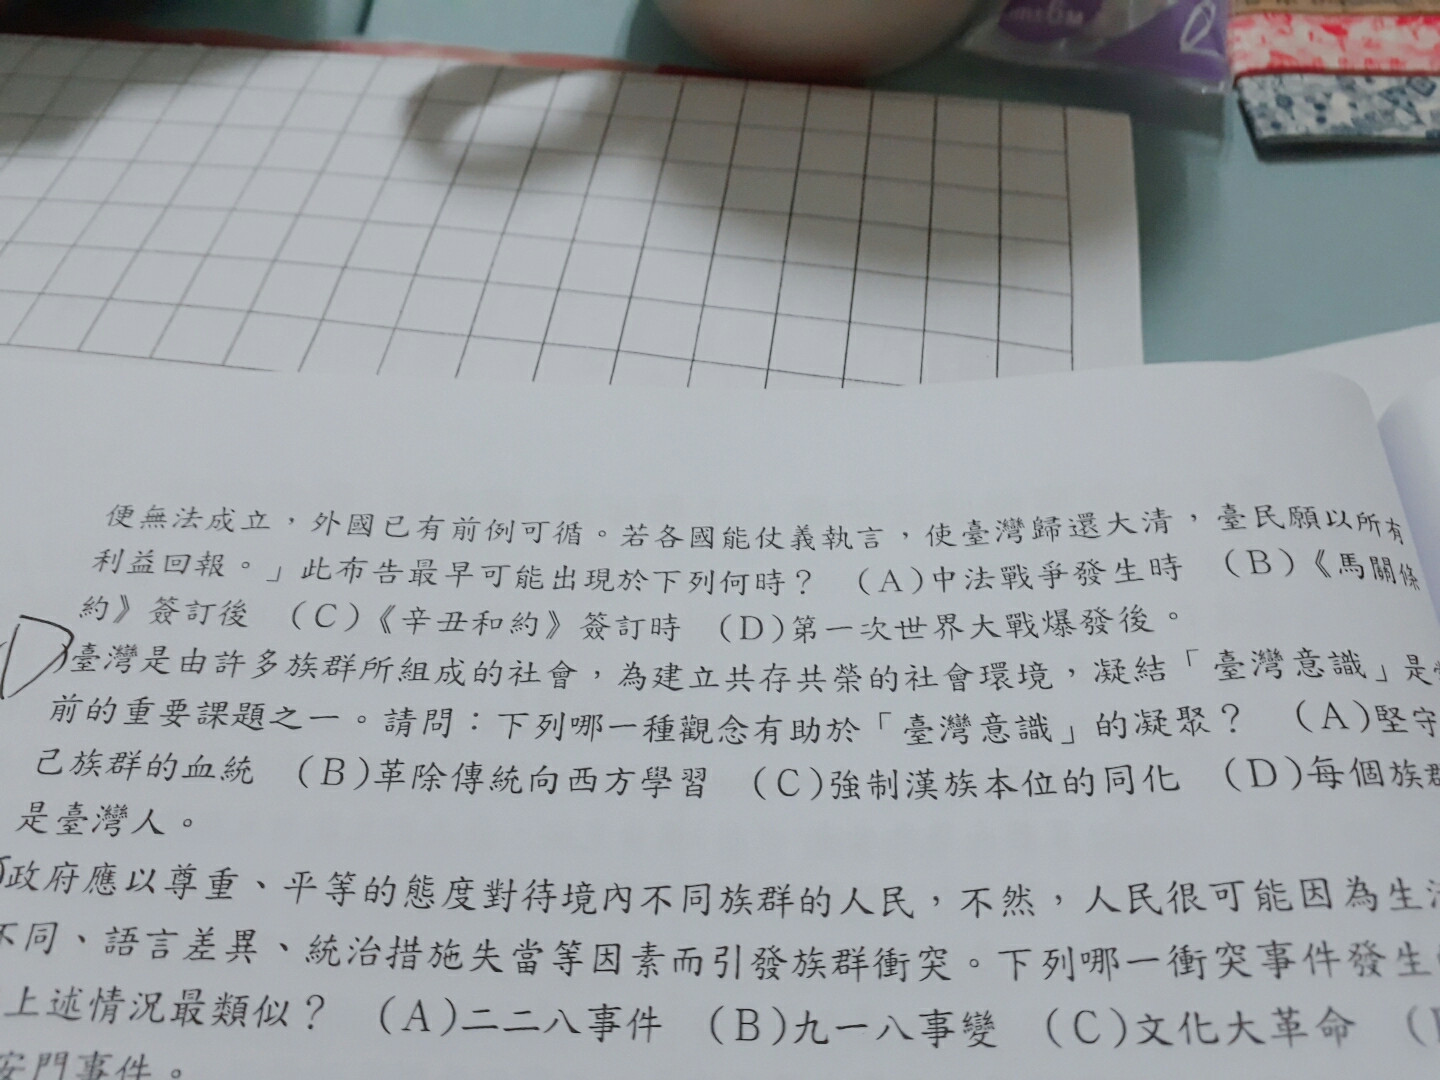 便無法成立，外國已有前例可循。若各國能仗義執言，使臺灣歸還大清，臺民願以所有
利益回報。」此布告最早可能出現於下列何時？ (A)中法戰爭發生時 (B)《馬關條
約》簽訂後 (C)《辛丑和約》簽訂時 (D)第一次世界大戰爆發後。
(D)臺灣是由許多族群所組成的社會，為建立共存共榮的社會環境，凝結「臺灣意識」是
前的重要課題之一。請問：下列哪一種觀念有助於「臺灣意識」的凝聚？ (A)堅守
己族群的血統 (B)革除傳統向西方學習 (C)強制漢族本位的同化 (D)每個族群
是臺灣人。
)政府應以尊重、平等的態度對待境內不同族群的人民，不然，人民很可能因為生活
不同、語言差異、統治措施失當等因素而引發族群衝突。下列哪一衝突事件發生
上述情況最類似？ (A)二二八事件 (B)九一八事變 (C)文化大革命
安門事件。